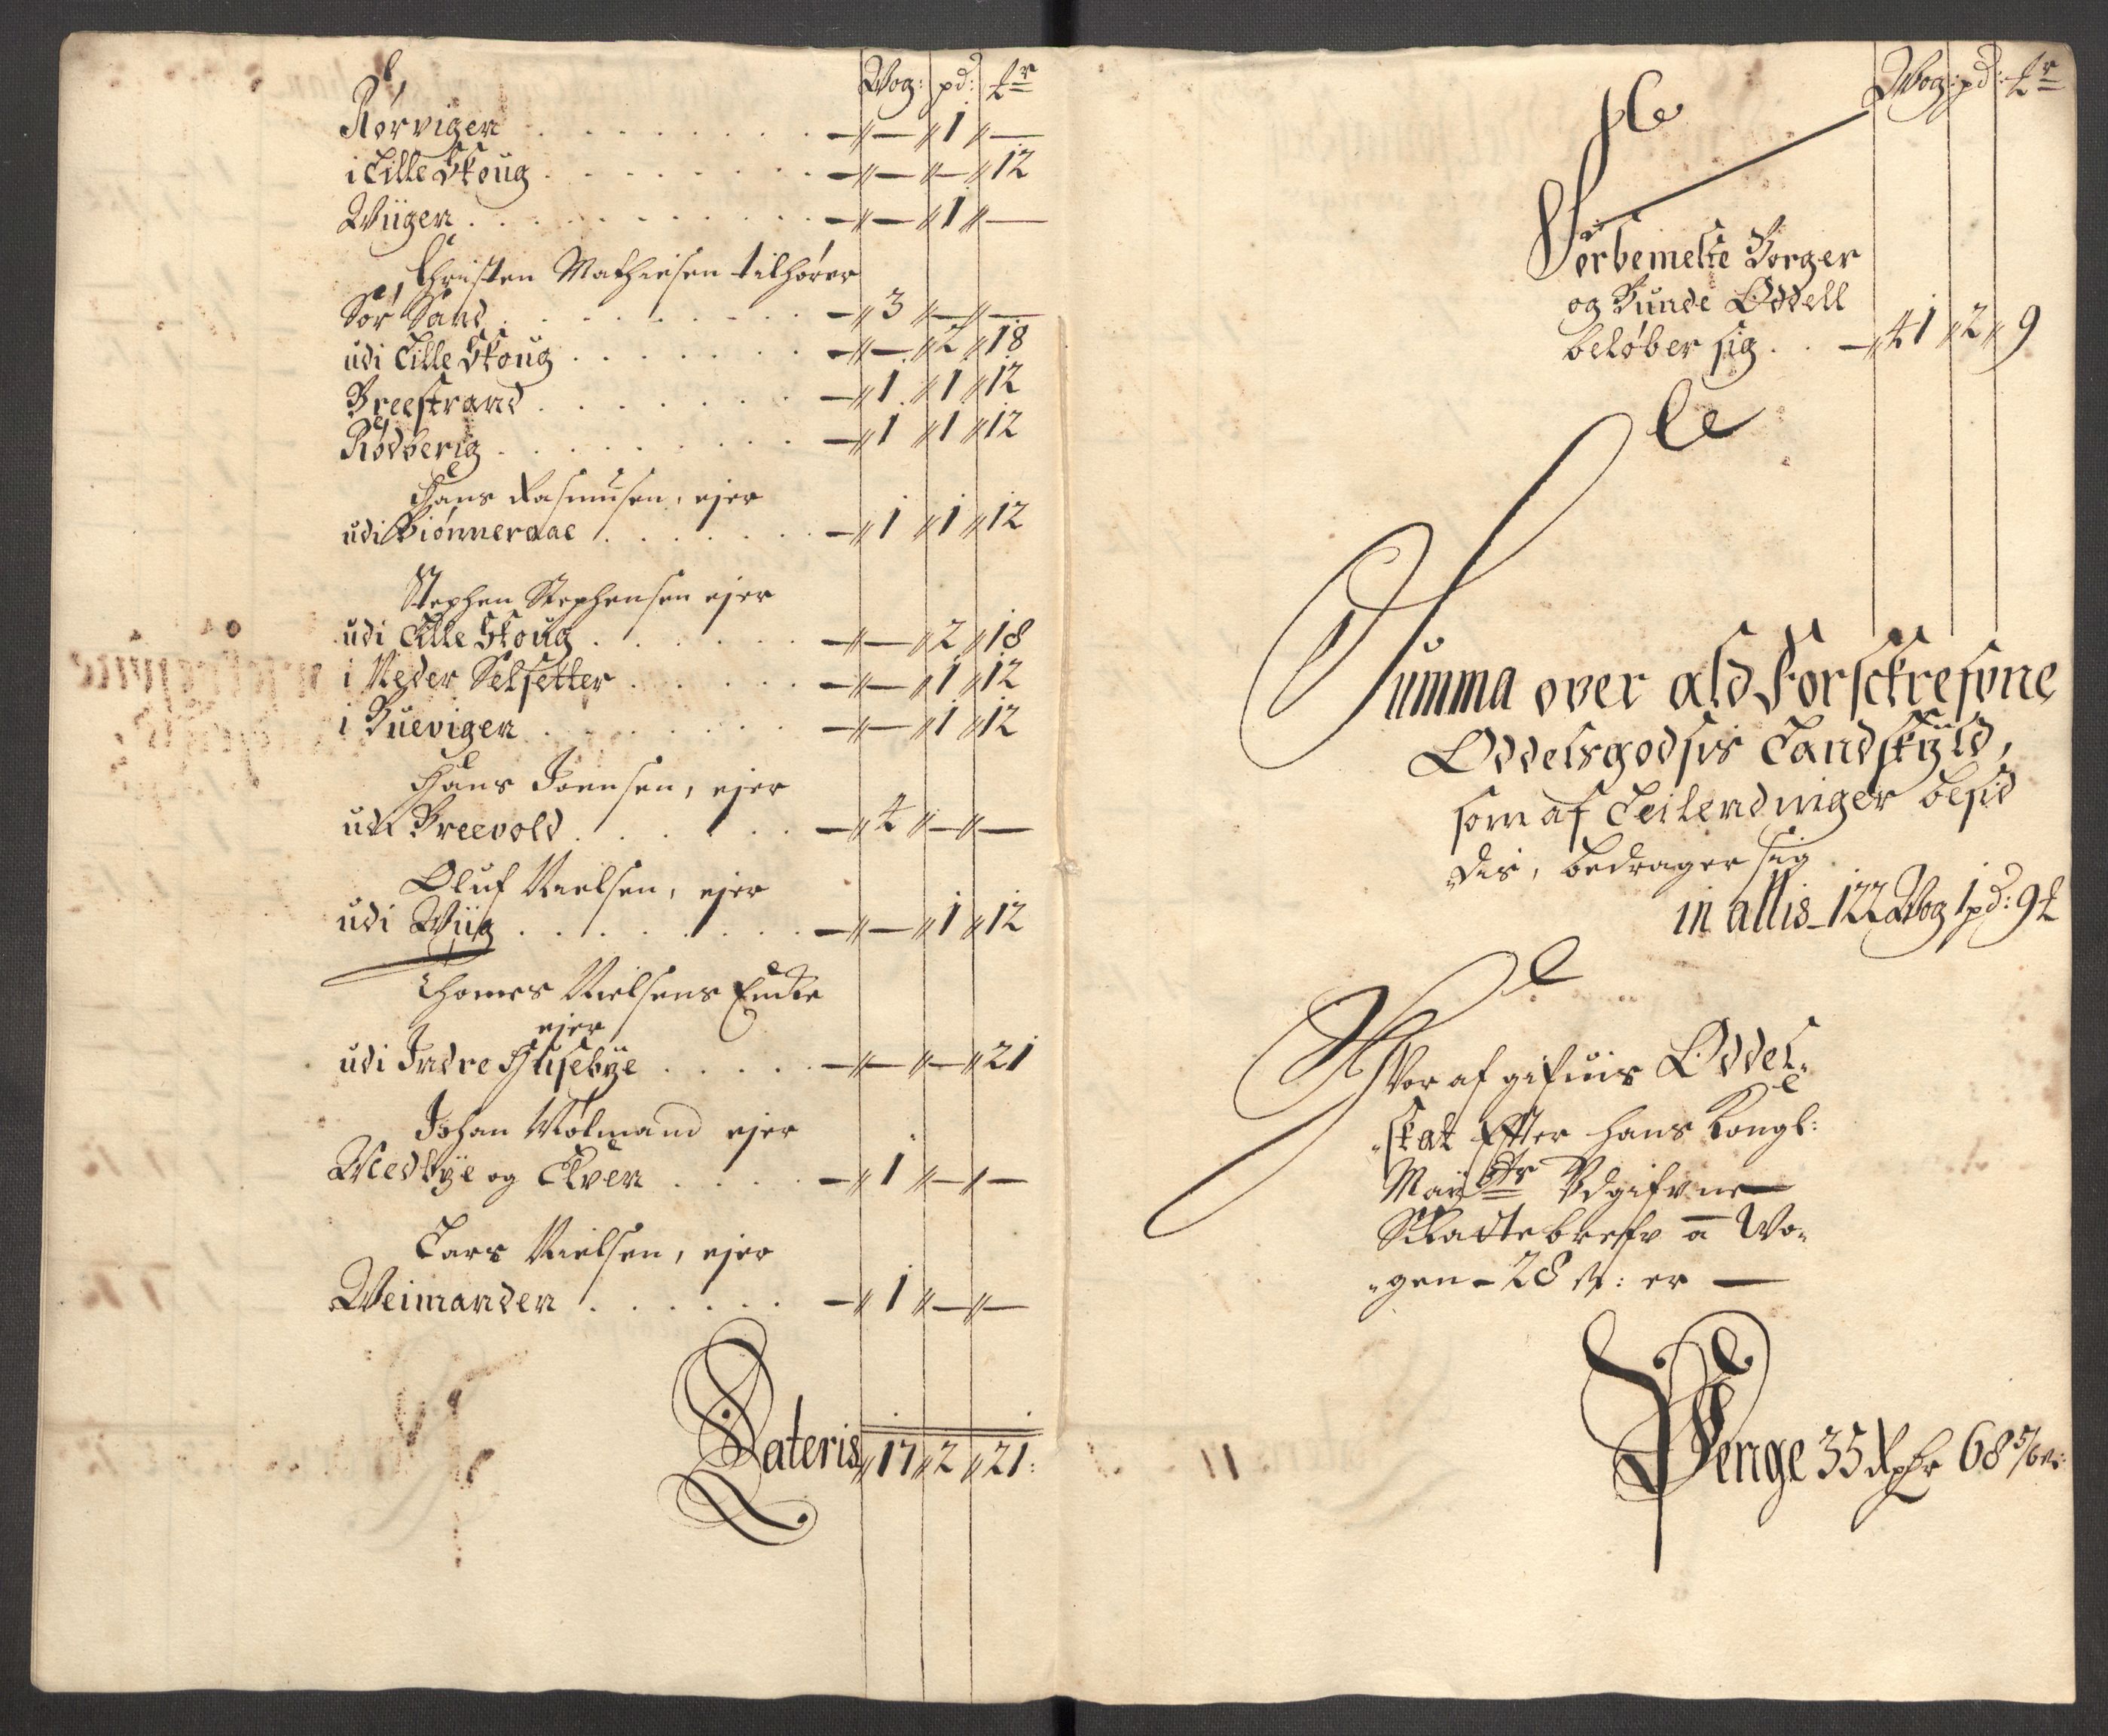 Wog: pd: ℔r
Rørvigen . . . . . . . . — „ — „ 1 „ —
i Lille Skoug . . . . . . . — „ — „ — „ 12
Wiigen . . . . . . . . . — „ — „ 1 „ —
Christen Mathiesen tilhører
Sør Sand . . . . . . . . — „ 3 „ — „ —
udi Lille Skoug . . . . . . — „ — „ 2 „ 18
Breestrand . . . . . . . — „ 1 „ 1 „ 12
Rødberig . . . . . . . . — „ 1 „ 1 „ 12
Hans Rasmusen, ejer
udi Biönneraae . . . . . . — „ 1 „ 1 „ 12
Stephen Stephensen ejer
udi Lille Skoug . . . . . . — „ — „ 2 „ 18
i Neder Selsetter . . . . . — „ — „ 1 „ 12
i Bueviigen . . . . . . . — „ — „ 1 „ 12
Hans Joensen, ejer
udi Breevold . . . . . . — „ 4 „ — „ —
Oluf Nielsen, ejer
udi Wiig . . . . . . . — „ — „ 1 „ 12
Thomes Nielsens Encke
ejer
udi Indre Husebÿe . . . . . — „ — „ — „ 21
Johan Mølmand ejer
Nedbÿe og Elven . . . . — „ 1 „ — „ —
Lars Nielsen, ejer
Weimanden . . . . . . — „ 1 „ — „ —
Lateris „ 17 „ 2 „ 21:
Wog: pd: ℔r
Forbemelte Borger
og Bunde Oddell
beløber sig . . — „ 41 „ 2 „ 9
Summa over ald Forsckrefvne
Oddelsgodsis Landskÿld,
som af Leilendninger besid
„dis, bedrager sig
in allis — 122 Wog 1 pd: 9 ℔
Hvor af gifuis Oddel„
„skat Effter hans Kongl:
Maÿtz Udgifvne —
Skattebreffv â Wo„
„gen — 28 s: er —
Penge 35 Rdr 68 5/6 s: